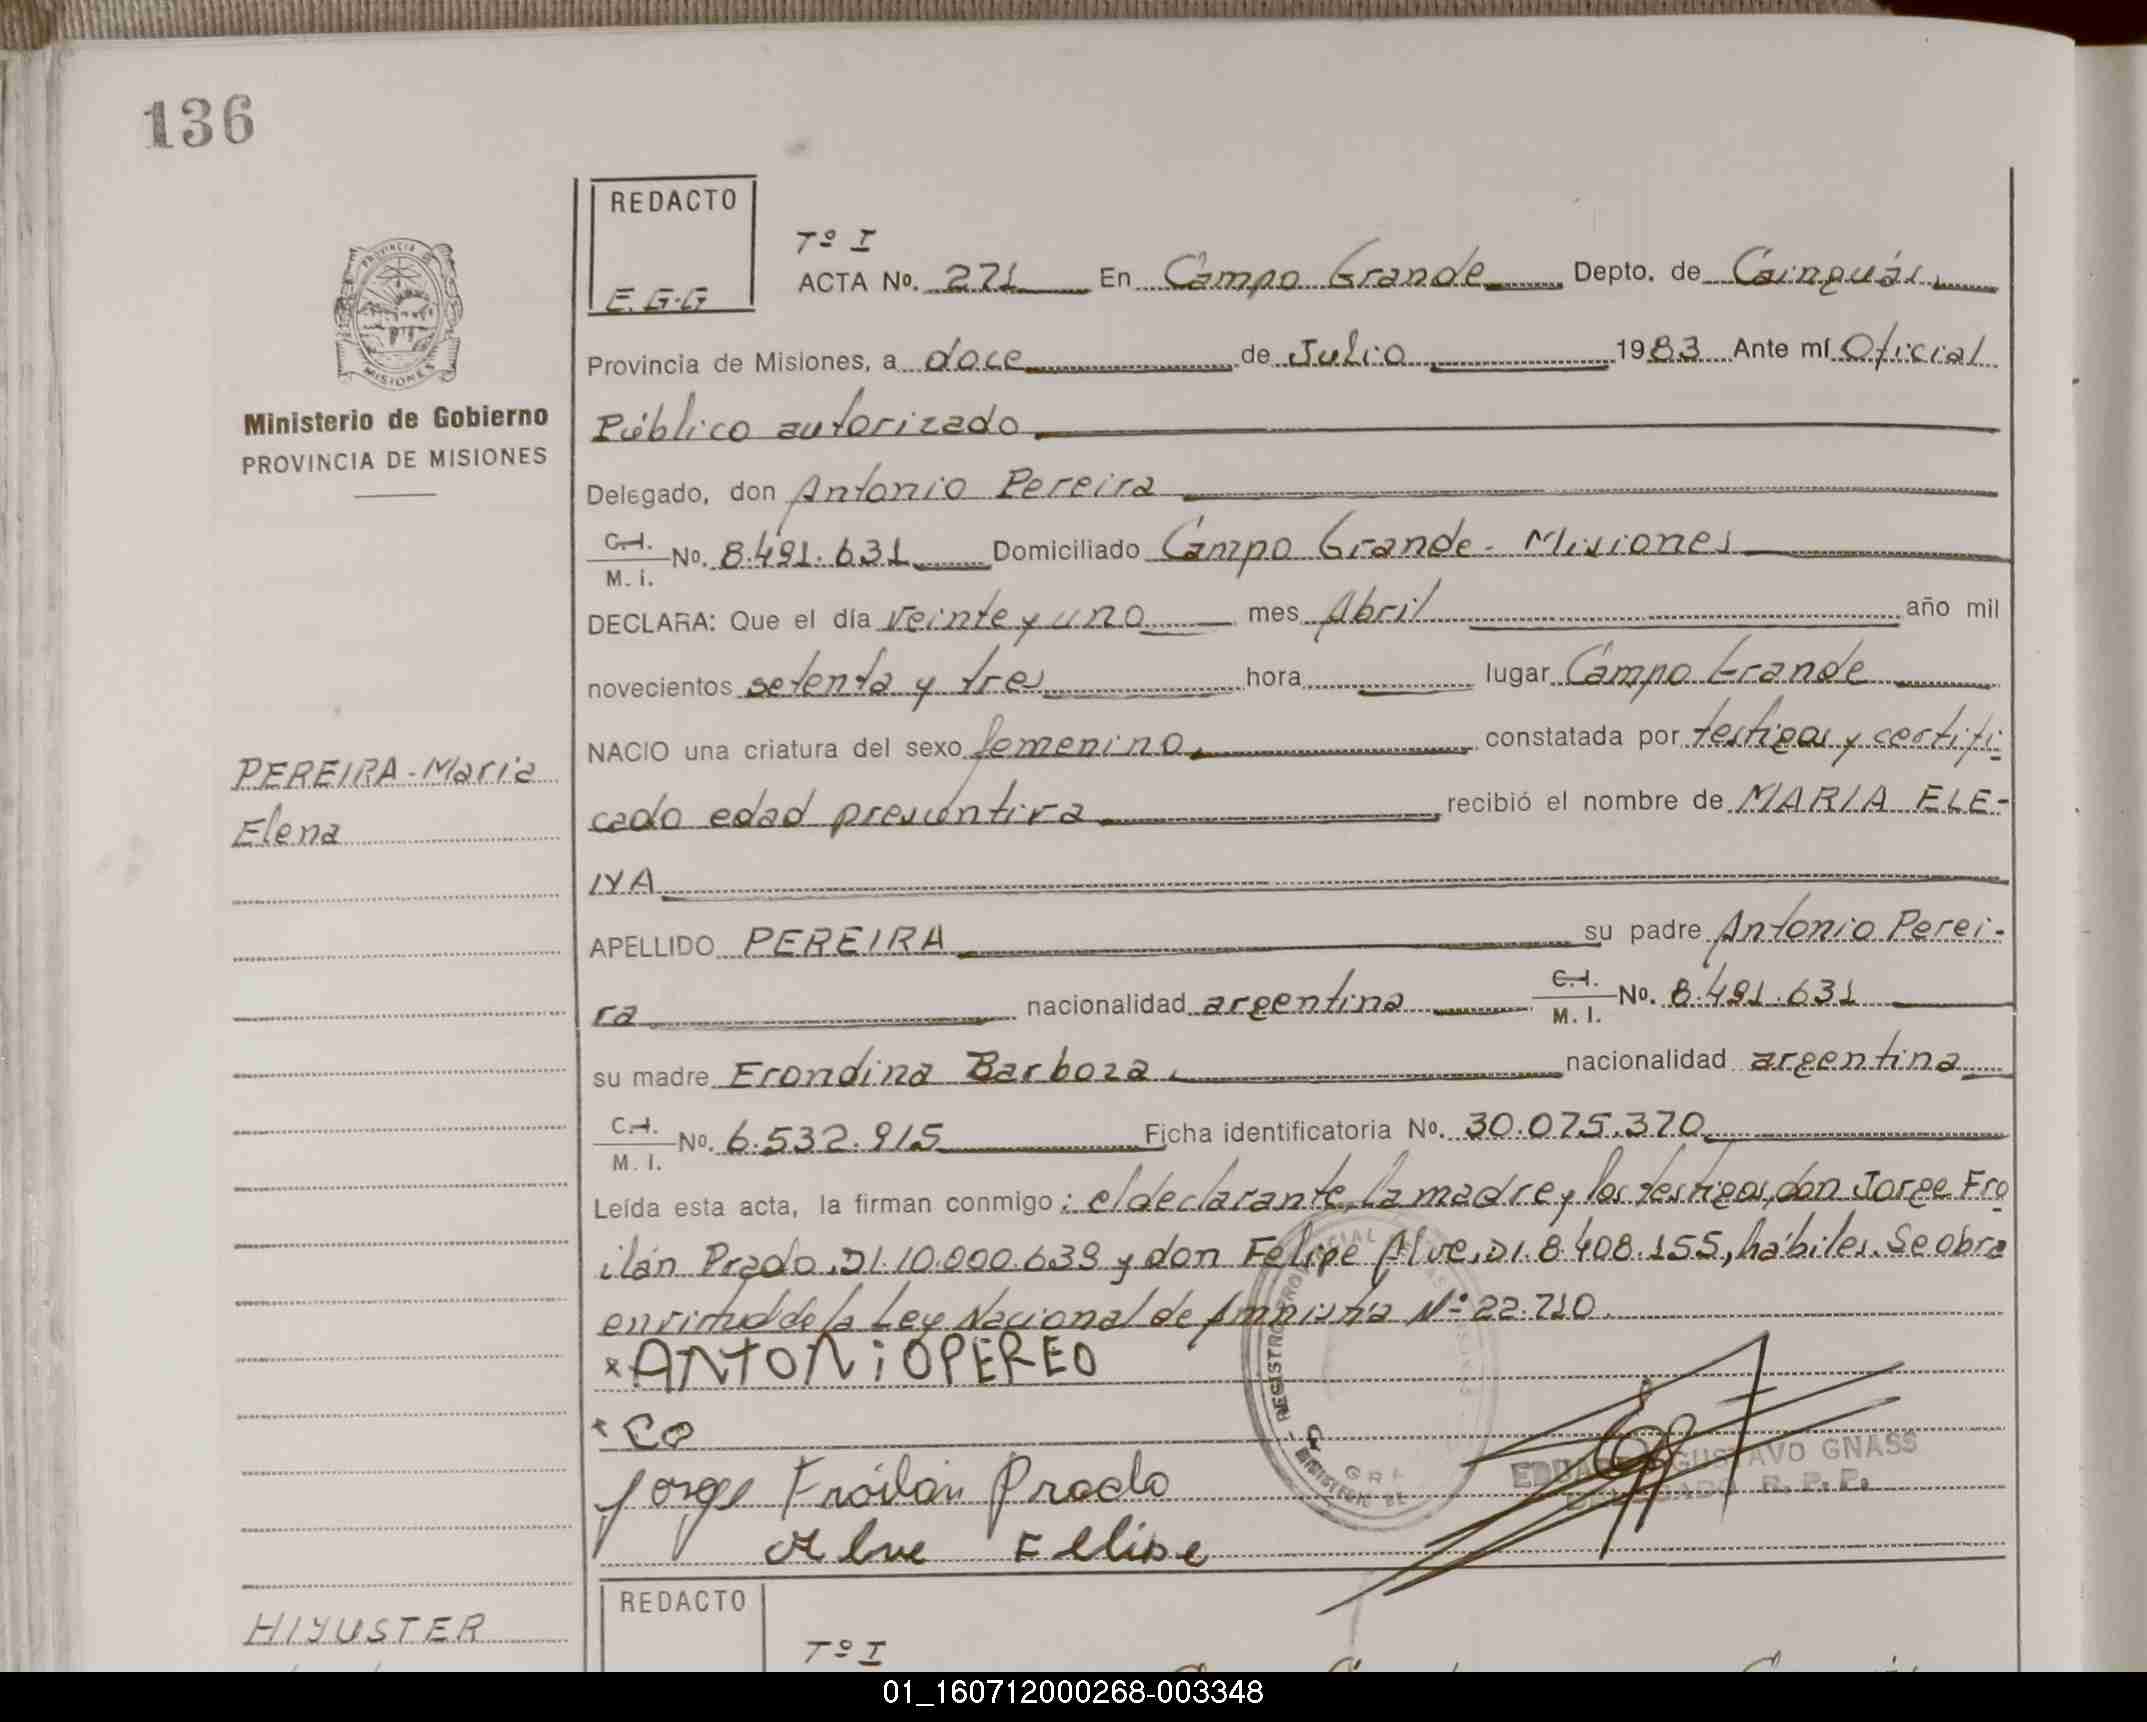 136
REDACTO
E.G.G
Tº I
ACTA No. 271 En Campo Grande Depto. de Cainguás
PROVINCIA
MISIONES
Ministerio de Gobierno
PROVINCIA DE MISIONES
Provincia de Misiones, a doce de Julio 1983 Ante mí Oficial
Público autorizado
Delegado, don Antonio Pereira
C.I. M. i. No. 8.491.631 Domiciliado Campo Grande - Misiones
DECLARA: Que el día veinte y uno mes Abril año mil
novecientos setenta y tres hora lugar Campo Grande
NACIO una criatura del sexo femenino, constatada por testigos y certifi-
PEREIRA - Maria
Elena
cado edad presuntiva recibió el nombre de MARIA ELE-
NA
APELLIDO PEREIRA su padre Antonio Perei-
ra nacionalidad argentina C.I. M. I. No. 8.491.631
su madre Erondina Barboza, nacionalidad argentina
C.I. M. I. No. 6.532.915 Ficha identificatoria No. 30.075.370
Leída esta acta, la firman conmigo: el declarante, la madre y los testigos, don Jorge Fro
ilán Prado, DI. 10.000.639 y don Felipe Alve, DI. 8.408.155, hábiles. Se obra
en virtud de la Ley Nacional de Amnistia Nº 22.710.
x ANTONiOPEREO
x Co
Jorge Froilán Prado
Alve Fellipe
EDUARDO GUSTAVO GNASS
DELEGADO R. P. P.
HIYUSTER
REDACTO
Tº I
01_160712000268-003348